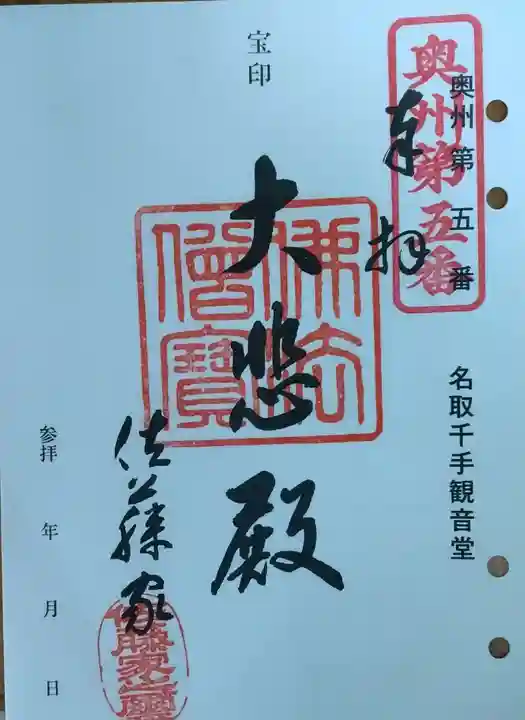 奥州第五番
奥州第五番
名取千手観音堂
奉拝
宝印
大悲殿
佛法僧寶
佐藤家
参拝 年 月 日